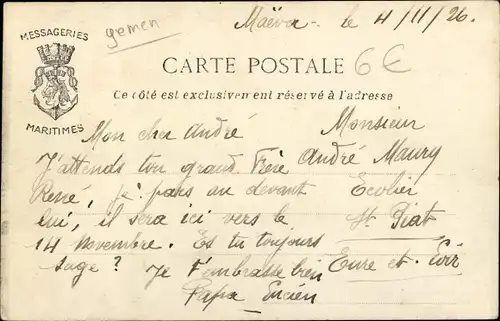 MESSAGERIES
MARITIMES
yemen
le 4/11/26.
CARTE POSTALE
6€
Ce côté est exclusivement réservé à l'adresse
Mon cher André
J'attends ton grand Frère
René, je pars au devant
lui, il sera ici vers le
14 novembre. Es tu toujours
sage? Je t'embrasse bien
Papa
Monsieur
André Maury
Ecolier
St Piat
Eure et Loir